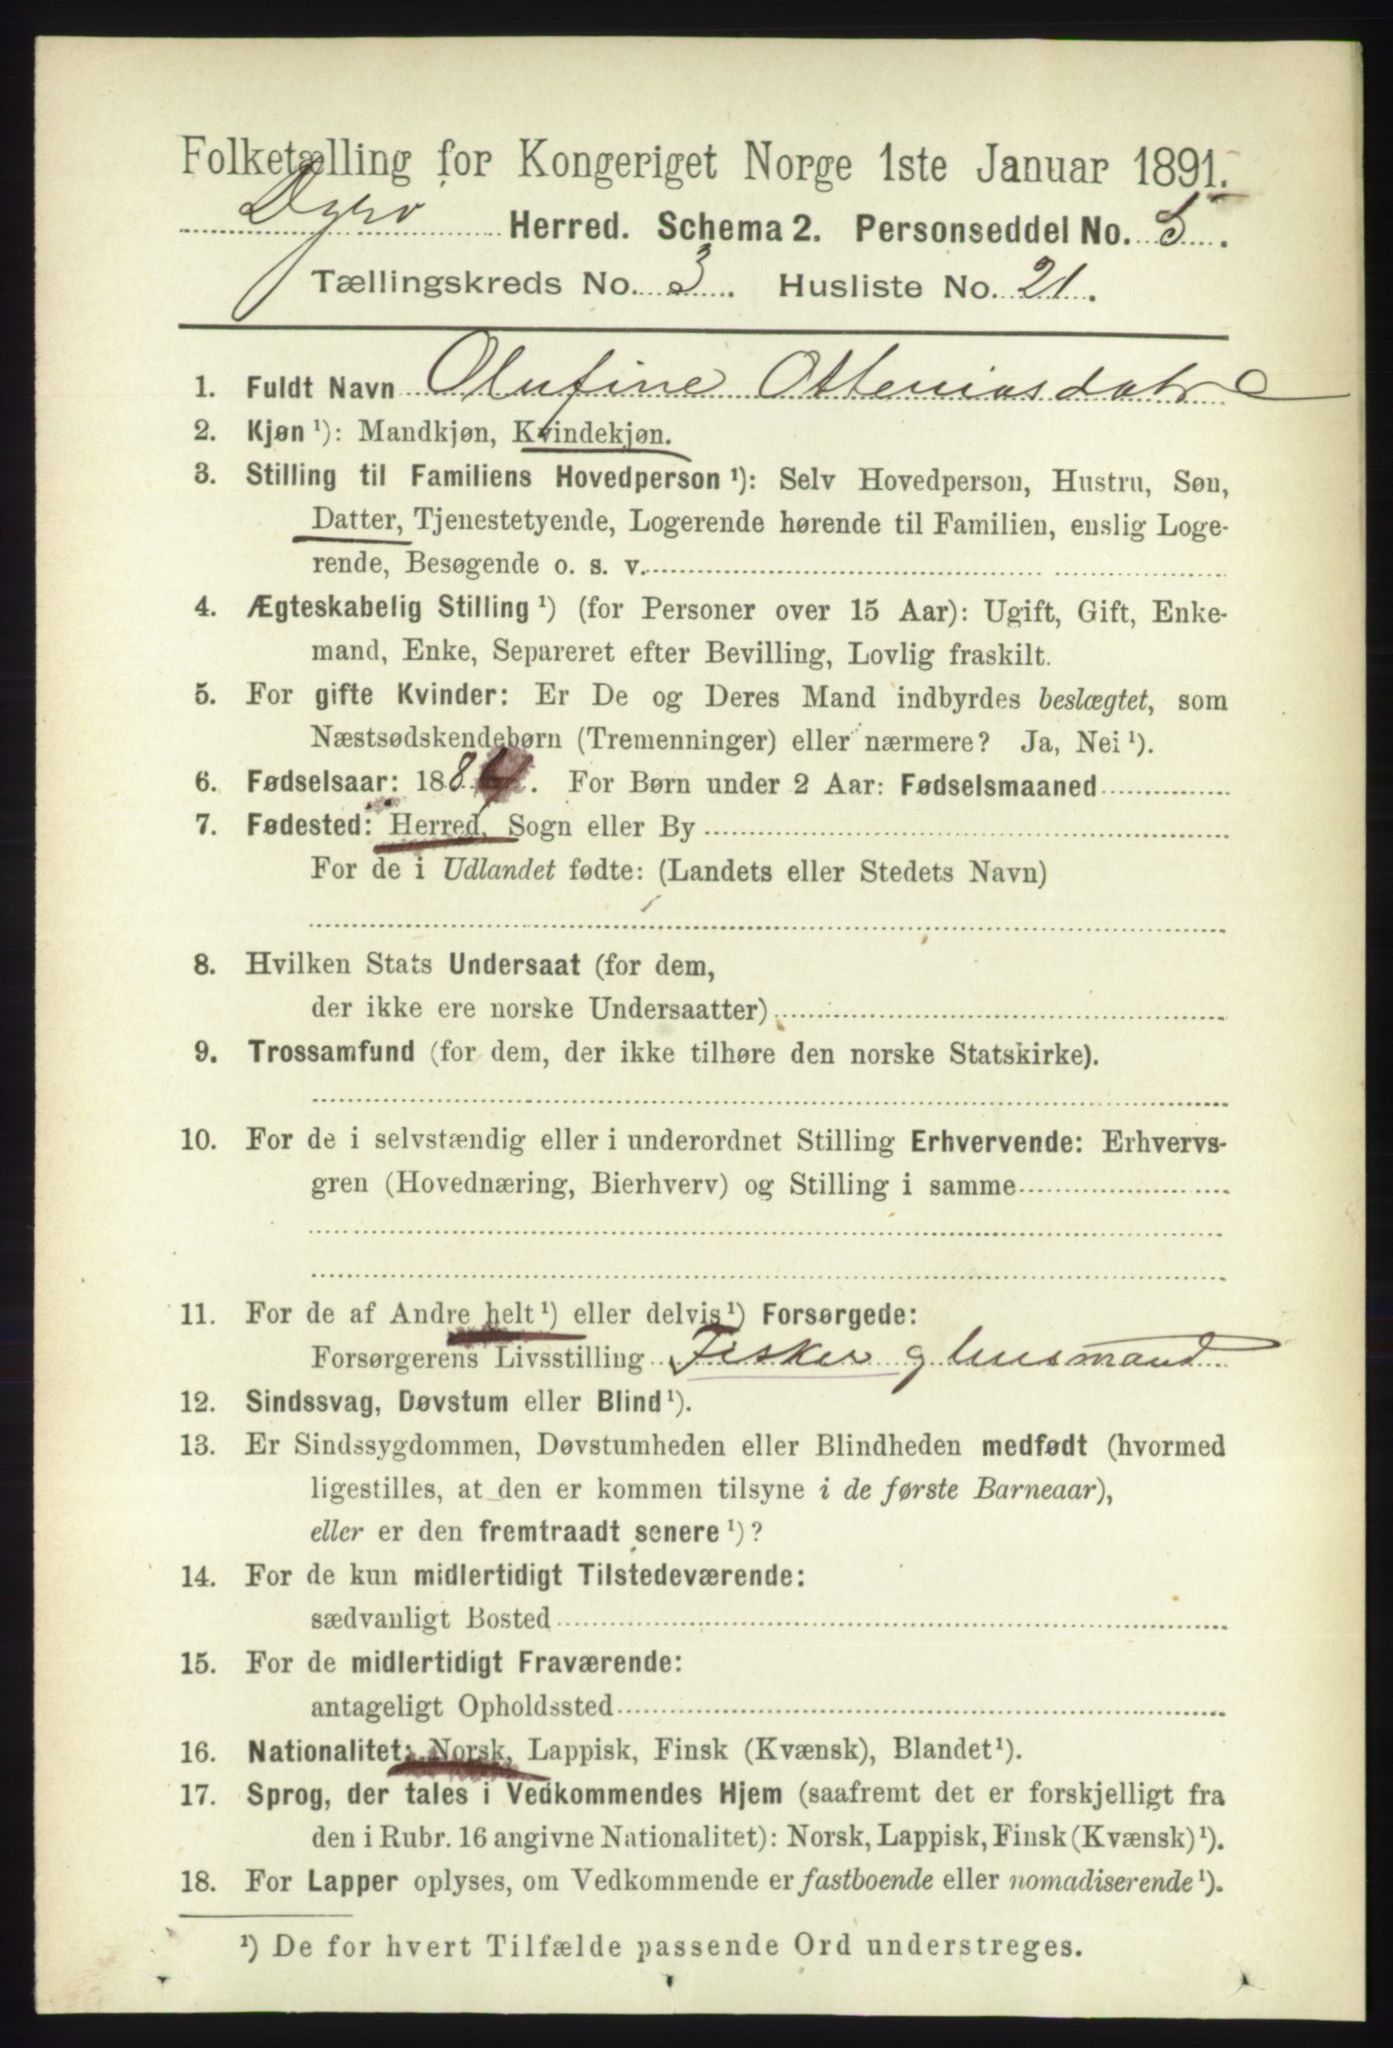 Folketælling for Kongeriget Norge 1ste Januar 1891.
Dyrø Herred. Schema 2. Personseddel No. 5.
Tællingskreds No. 3. Husliste No. 21.
1. Fuldt Navn Olufine Otteniasdatr
2. Kjøn ¹): Mandkjøn, Kvindekjøn.
3. Stilling til Familiens Hovedperson ¹): Selv Hovedperson, Hustru, Søn,
Datter, Tjenestetyende, Logerende hørende til Familien, enslig Loge-
rende, Besøgende o. s. v.
4. Ægteskabelig Stilling ¹) (for Personer over 15 Aar): Ugift, Gift, Enke-
mand, Enke, Separeret efter Bevilling, Lovlig fraskilt.
5. For gifte Kvinder: Er De og Deres Mand indbyrdes beslægtet, som
Næstsødskendebørn (Tremenninger) eller nærmere? Ja, Nei ¹).
6. Fødselsaar: 1884. For Børn under 2 Aar: Fødselsmaaned
7. Fødested: Herred, Sogn eller By
For de i Udlandet fødte: (Landets eller Stedets Navn)
8. Hvilken Stats Undersaat (for dem,
der ikke ere norske Undersaatter)
9. Trossamfund (for dem, der ikke tilhøre den norske Statskirke).
10. For de i selvstændig eller i underordnet Stilling Erhvervende: Erhvervs-
gren (Hovednæring, Bierhverv) og Stilling i samme
11. For de af Andre helt ¹) eller delvis ¹) Forsørgede:
Forsørgerens Livsstilling Fisker og husmand
12. Sindssvag, Døvstum eller Blind ¹).
13. Er Sindssygdommen, Døvstumheden eller Blindheden medfødt (hvormed
ligestilles, at den er kommen tilsyne i de første Barneaar),
eller er den fremtraadt senere ¹)?
14. For de kun midlertidigt Tilstedeværende:
sædvanligt Bosted
15. For de midlertidigt Fraværende:
antageligt Opholdssted
16. Nationalitet: Norsk, Lappisk, Finsk (Kvænsk), Blandet ¹).
17. Sprog, der tales i Vedkommendes Hjem (saafremt det er forskjelligt fra
den i Rubr. 16 angivne Nationalitet): Norsk, Lappisk, Finsk (Kvænsk) ¹).
18. For Lapper oplyses, om Vedkommende er fastboende eller nomadiserende ¹).
¹) De for hvert Tilfælde passende Ord understreges.